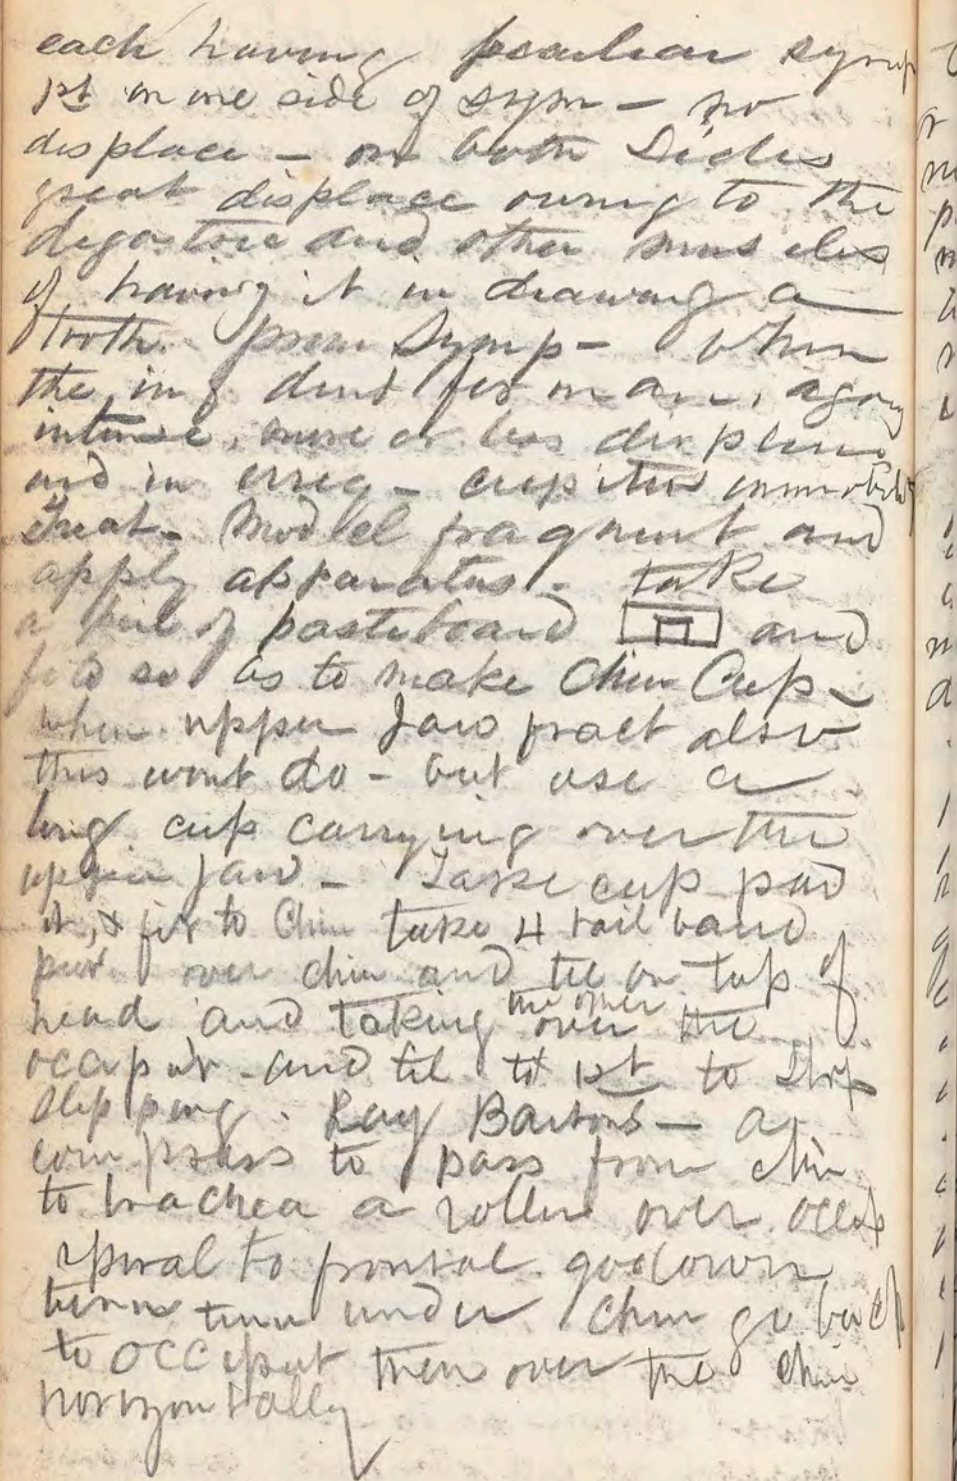 each having peculiar symp
1st on one side of sym — no
displace — on both sides
great displace owing to the
degastric and other muscles
of having it in drawing a
tooth. Symp — when
the inf dent for man, agony
intense, more or less displace
and in irreg — crepitus immobility
Treat — Model fragment and
apply apparatus — take
a of pasteboard and
so as to make Chin Cup —
when upper Jaw fract also
this wont do — but use a
long cup carrying over the
upper jaw — Take cup pad
it, & fix to Chin take 4 tail band
put over chin and tie on top of
head and taking the other over the
occiput and tie to 1st to stop
slipping. Ray Bartons — a
compress to pass from chin
to trachea a roller over occip
spiral to frontal go down
turn under Chin go back
to occiput then over the chin
horizontally